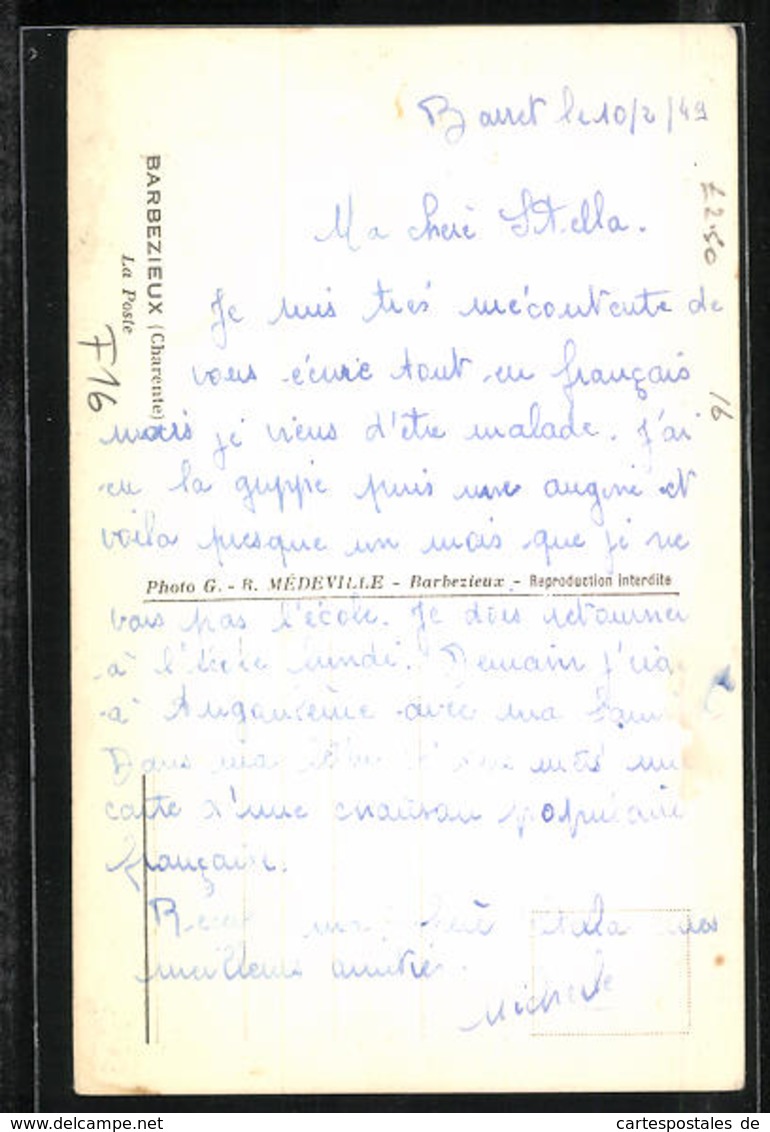 Barret le 10/2/49
Ma cheré Stella.
Je suis trés mécontente de
vous écrire tout en français
mais je viens d'être malade. J'ai
eu la grippe puis une angine et
voila presque un mois que je ne
vais pas l'école. Je dois retourner
à l'école lundi. Demain j'irai
à Angoulème avec ma
Dans ma mets une
carte d'une chanson populaire
française.
Reçois ma cheré Stella mes
meilleurs amitiés.
Michele
BARBEZIEUX (Charente)
La Poste
F16
£2.50
16
Photo G. - R. MÉDEVILLE - Barbezieux - Reproduction interdite
www.delcampe.net
cartespostales de